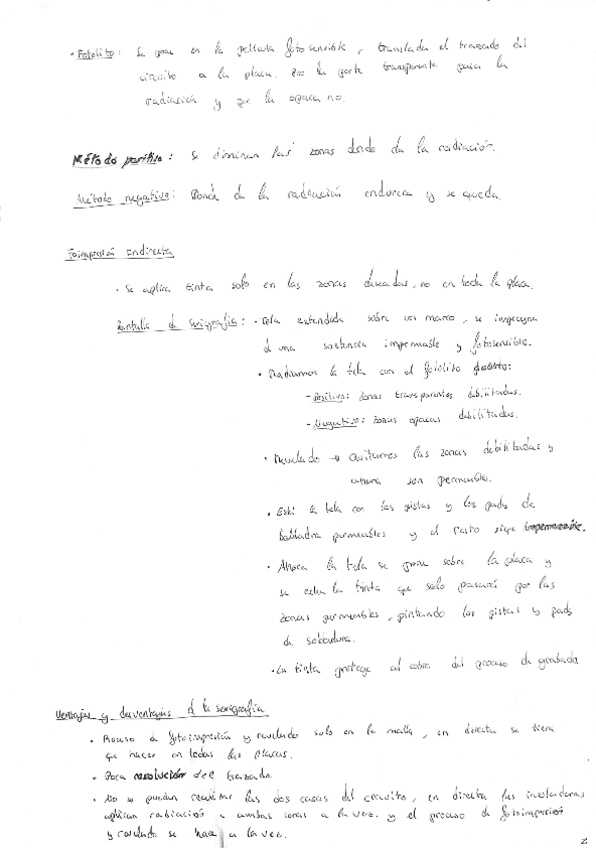 · Fotolito: Se pone en la película fotosensible, translada el trazado del
circuito a la placa. Por la parte transparente pasa la
radiación y por la opaca no.
Método positivo: Se eliminan las zonas donde da la radiación.
Método negativo: Donde da la radiación endurece y se queda.
Fotoimpresión Indirecta
· Se aplica tinta solo en las zonas deseadas, no en toda la placa.
Pantalla de serigrafía: · Tela extendida sobre un marco, se impregna
d una sustancia impermeable y fotosensible.
· Radiamos la tela con el fotolito
- Positivo: zonas transparentes debilitadas.
- Negativo: zonas opacas debilitadas.
· Revelado → Quitamos las zonas debilitadas y
ahora son permeables.
· Está la tela con las pistas y los pads de
soldadura permeables y el resto sigue impermeable.
· Ahora la tela se pone sobre la placa y
se echa la tinta que solo pasará por las
zonas permeables, pintando las pistas y pads
de soldadura.
· La tinta protege al cobre del proceso de grabado
Ventajas y desventajas d la serigrafía
· Proceso d fotoimpresión y revelado solo en la malla, en directa se tiene
que hacer en todas las placas.
· Poca resolución del trazado.
· No se pueden realizar las dos caras del circuito, en directa las insoladoras
aplican radiación a ambas caras a la vez. y el proceso de fotoimpresión
y revelado se hace a la vez.
2